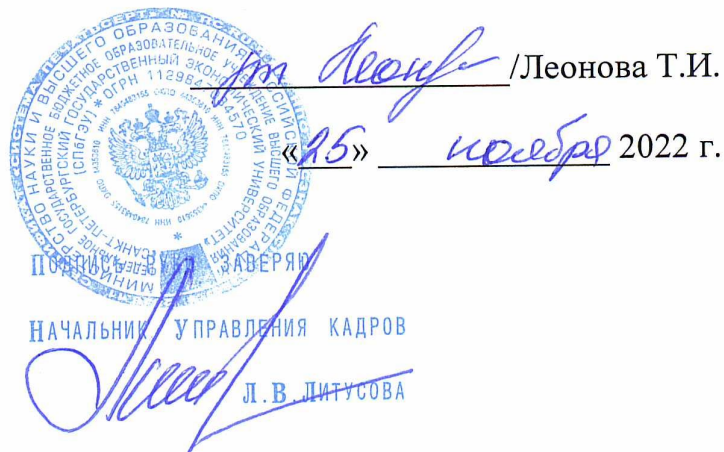 /Леонова Т.И.
«25» ноября 2022 г.
МИНИСТЕРСТВО НАУКИ И ВЫСШЕГО ОБРАЗОВАНИЯ РОССИЙСКОЙ ФЕДЕРАЦИИ
ГОСУДАРСТВЕННОЕ БЮДЖЕТНОЕ ОБРАЗОВАТЕЛЬНОЕ УЧРЕЖДЕНИЕ ВЫСШЕГО ОБРАЗОВАНИЯ
САНКТ-ПЕТЕРБУРГСКИЙ ГОСУДАРСТВЕННЫЙ ЭКОНОМИЧЕСКИЙ УНИВЕРСИТЕТ»
(СПбГЭУ) * ОГРН
ПОДПИСЬ ЗАВЕРЯЮ
НАЧАЛЬНИК УПРАВЛЕНИЯ КАДРОВ
Л.В.ЛИТУСОВА